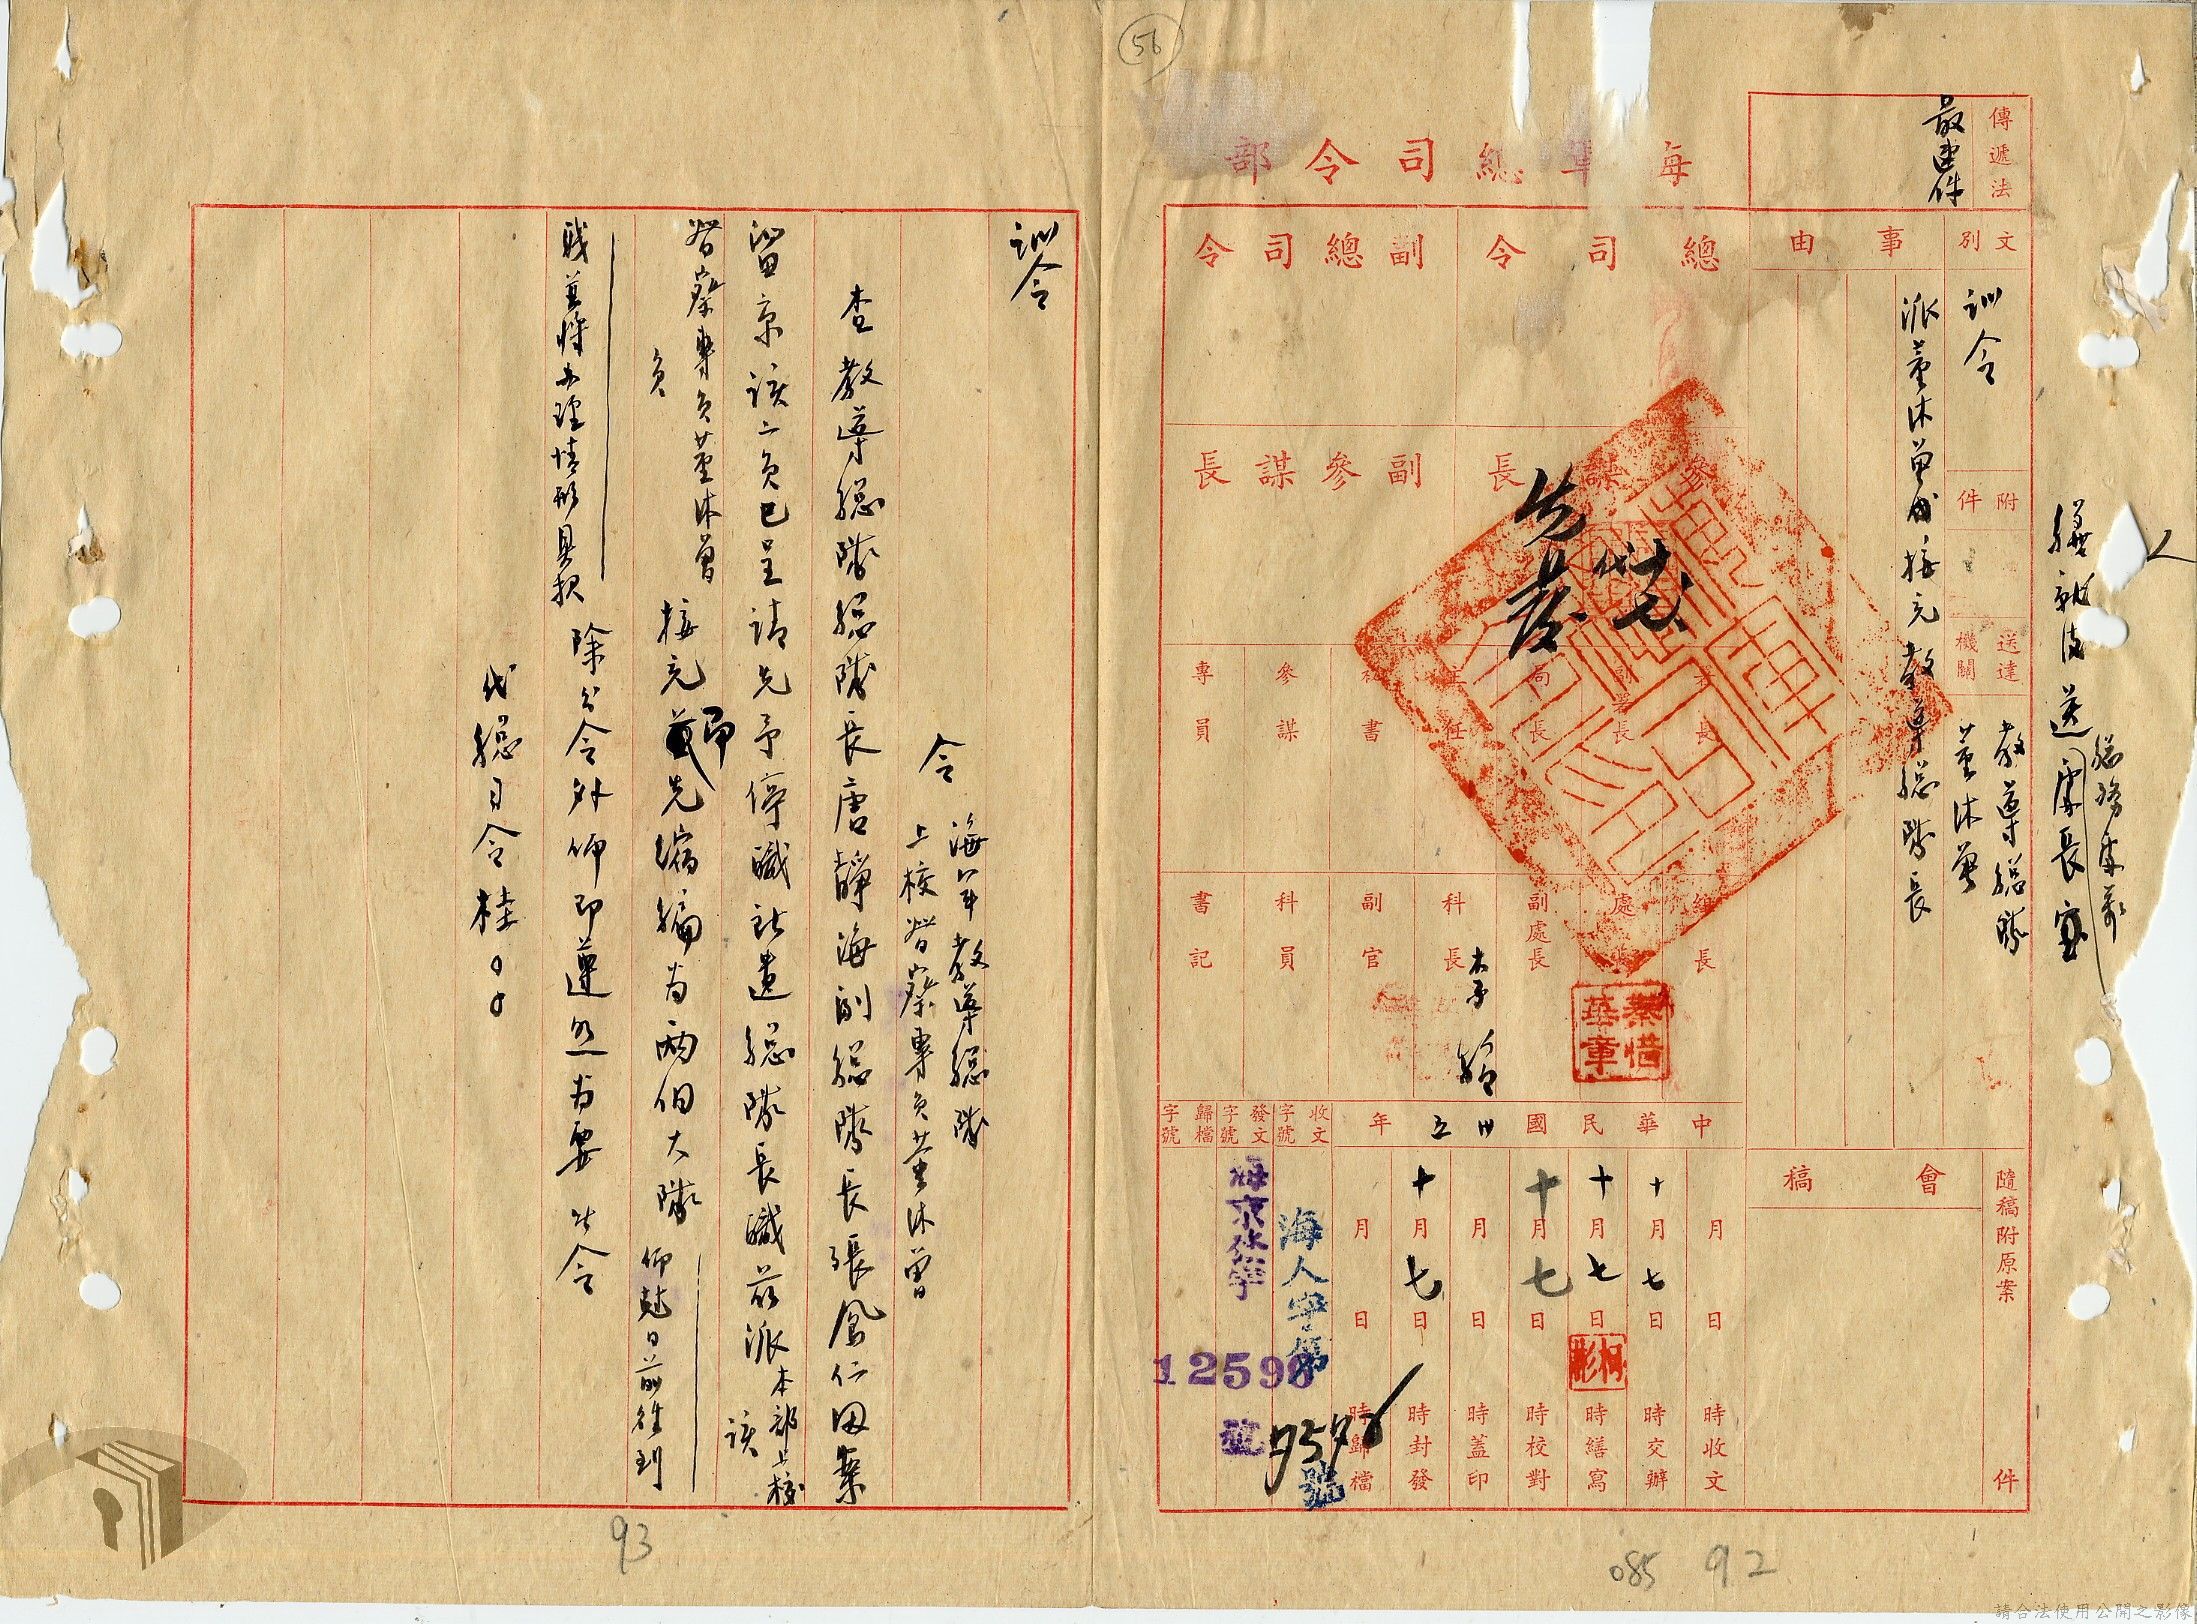 56
海軍總司令部
傳遞法
最速件
文別
訓令
附件
送達機關
教導總隊
董沐曾
事由
派董沐曾接充教導總隊長
隨稿附原案
件
會稿
總司令
副總司令
參謀長
副參謀長
代
署長
副署長
局長
主任
秘書
參謀
專員
組長
處長
副處長
科長
副官
科員
書記
秦惜華章
中華民國卅五年
月 日 時收文
十月七日 時交辦
十月七日 時繕寫
十月七日 時校對
月 日 時蓋印
十月七日 時封發
月 日 時歸檔
柯彬
收文字號
發文字號
歸檔字號
海人字第
號
12598
號
送處長室
訓令
令 海軍教導總隊
上校督察專員董沐曾
查教導總隊總隊長唐靜海副總隊長張鳳仁因案
留京該二員已呈請先予停職所遺總隊長職茲派本部上校
督察專員董沐曾
接充
即先縮編為兩個大隊
仰尅日前往到
職並將辦理情形具報
除分令外仰即遵照為要此令
代總司令桂○○
93
085 92
請合法使用公開之影像